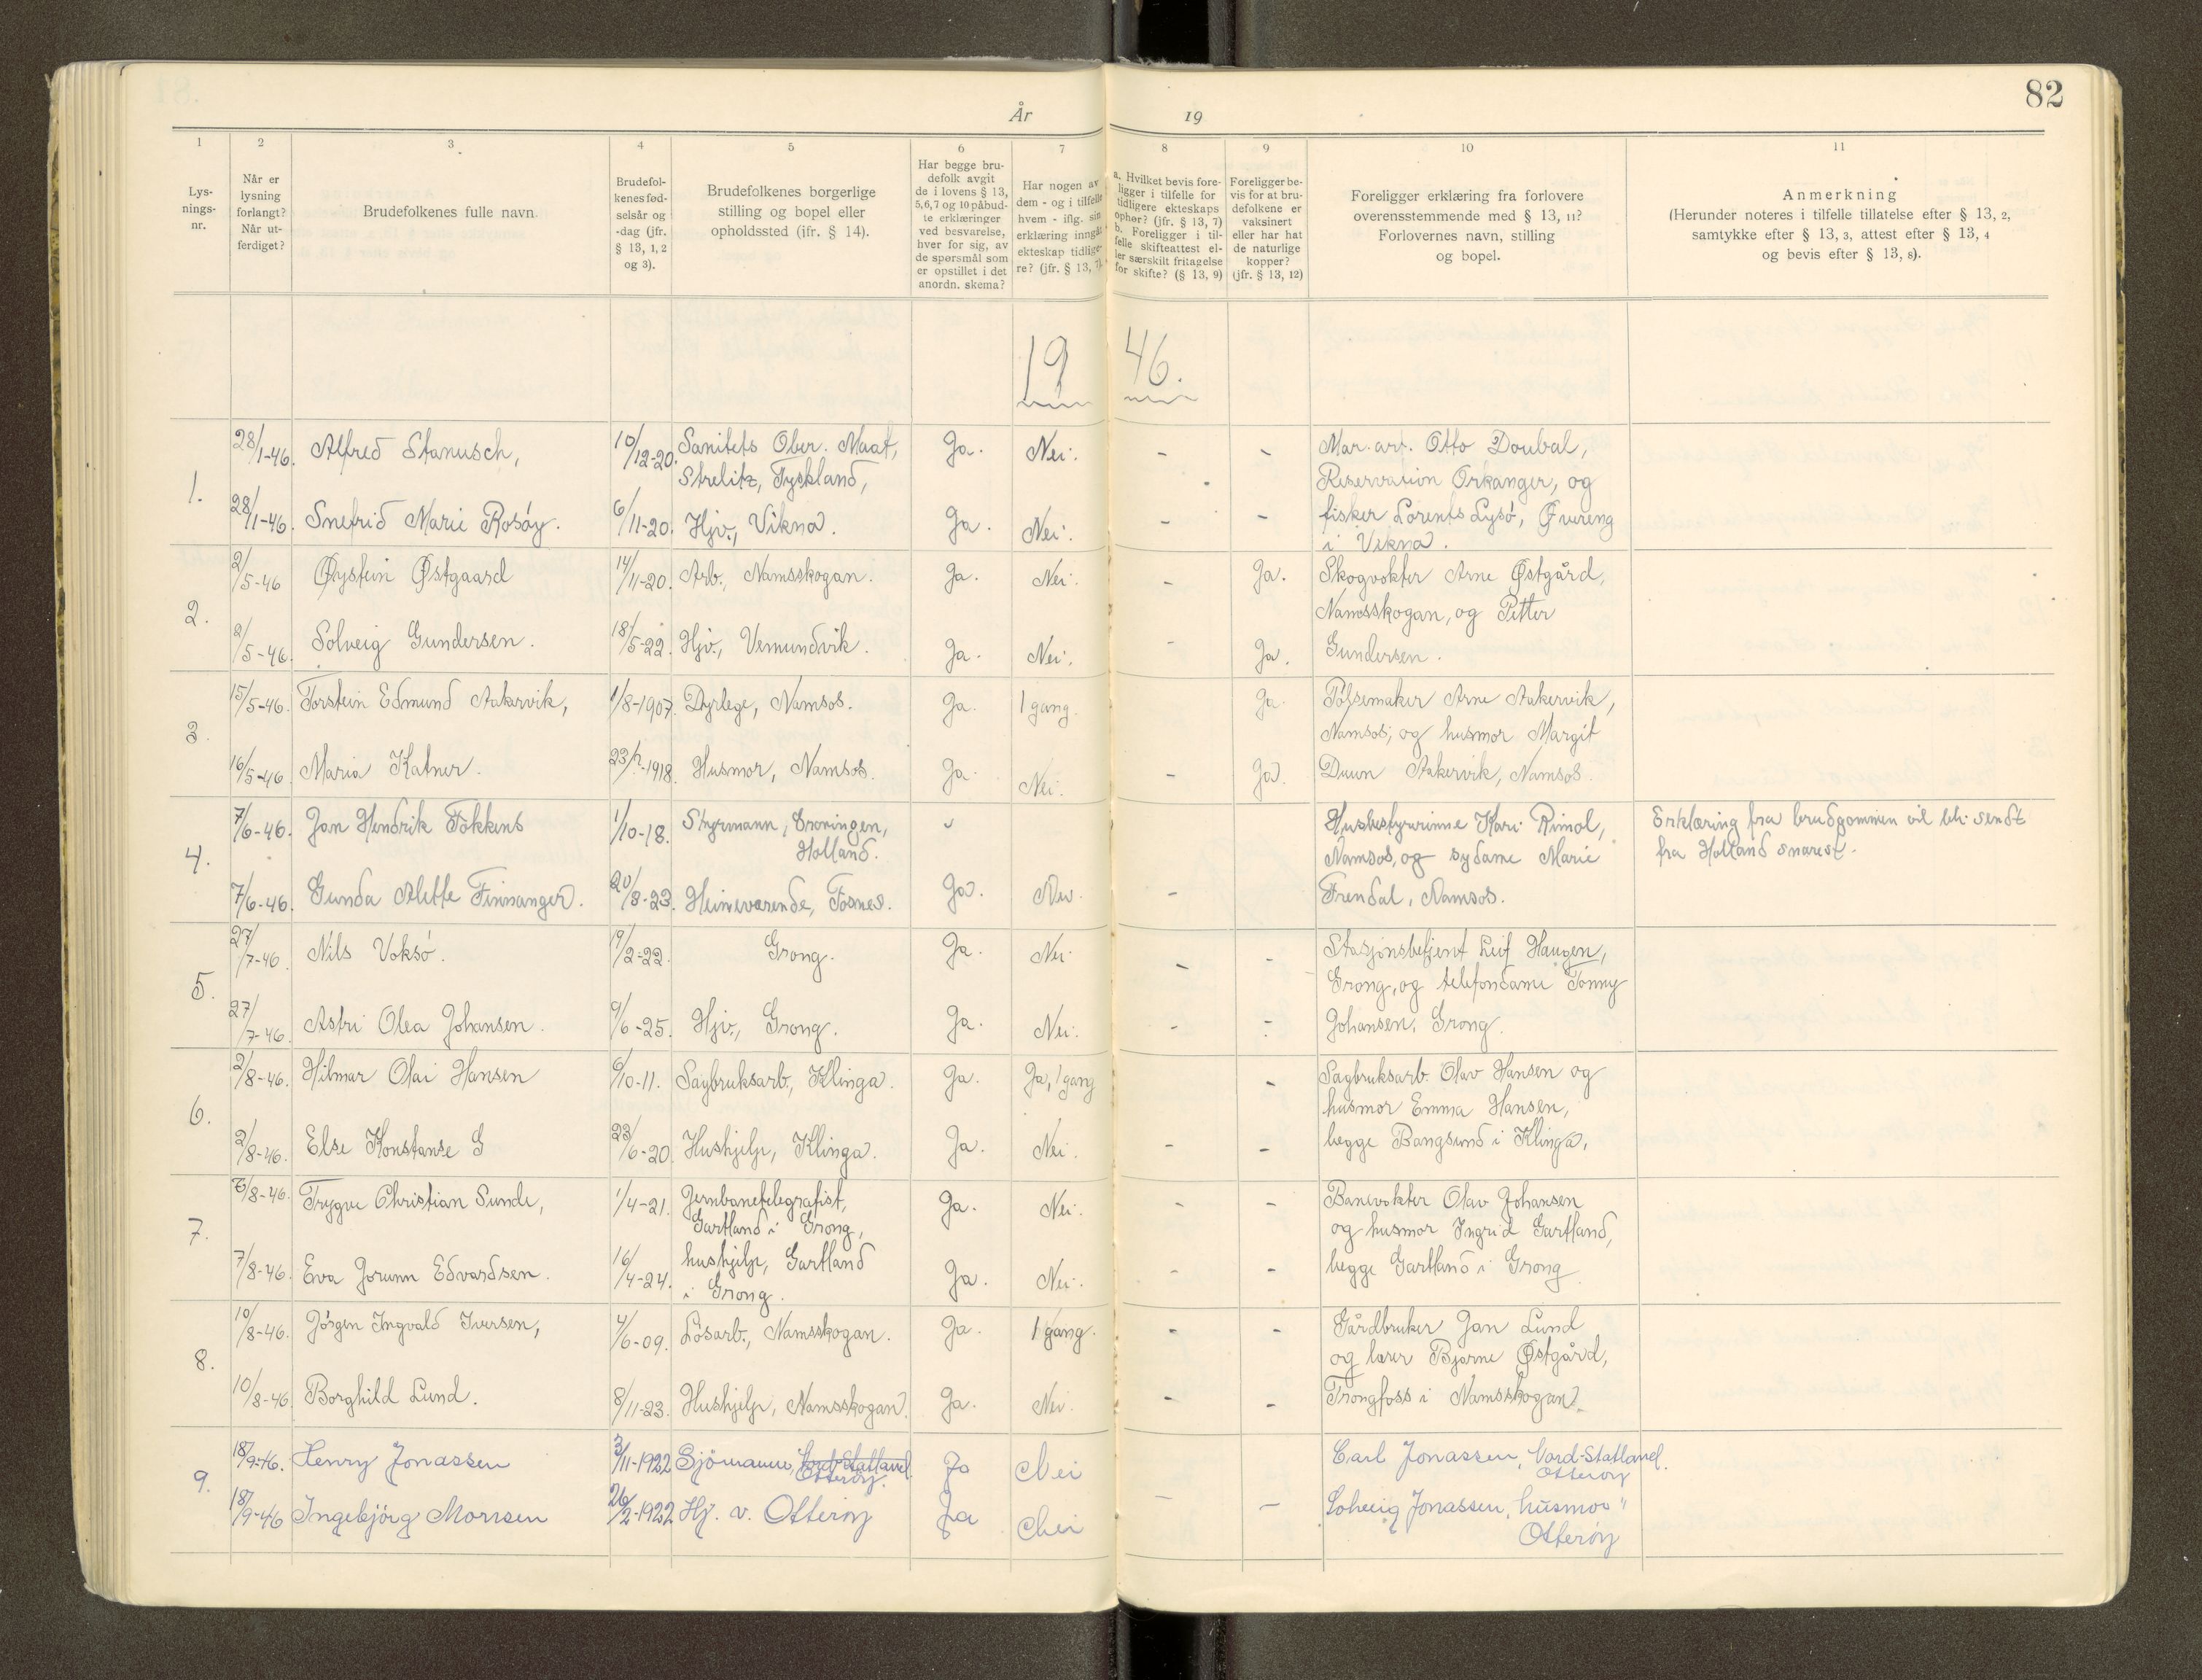 82
År 19
1 2 3 4 5 6 7 8 9 10 11
Lys-
nings-
nr.
Når er
lysning
forlangt?
Når ut-
ferdiget?
Brudefolkenes fulle navn
Brudefol-
kenes fød-
selsår og
-dag (jfr.
§ 13, 1, 2
og 3).
Brudefolkenes borgerlige
stilling og bopel eller
opholdssted (ifr. § 14).
Har begge bru-
defolk avgit
de i lovens § 13,
5,6,7 og 10 påbud-
te erklæringer
ved besvarelse,
hver for sig, av
de spørsmål som
er opstillet i det
anordn. skema?
Har nogen av
dem - og i tilfelle
hvem - iflg. sin
erklæring inngått
ekteskap tidlige-
re? (jfr. § 13, 7).
a. Hvilket bevis fore-
ligger i tilfelle for
tidligere ekteskaps
ophør? (jfr. § 13, 7)
b. Foreligger i til-
felle skifteattest el-
ler særskilt fritagelse
for skifte? (§ 13, 9)
Foreligger be-
vis for at bru-
defolkene er
vaksinert
eller har hat
de naturlige
kopper?
(jfr. § 13, 12)
Foreligger erklæring fra forlovere
overensstemmende med § 13, 11?
Forlovernes navn, stilling
og bopel.
Anmerkning
(Herunder noteres i tilfelle tillatelse efter § 13, 2,
samtykke efter § 13, 3, attest efter § 13, 4
og bevis efter § 13, 8).
19 46.
1.
28/1-46. Alfred Stanusch, 10/12-20. Sanitets Ober. Maat, Ja. Nei. - - Mar. art. Otto Doubal,
Strelitz, Tyskland, Reservation Orkanger, og
28/1-46. Snefrid Marie Rosøy. 6/11-20. Hjv., Vikna. Ja. Nei. - - fisker Lorents Lysö,
i Vikna.
2.
2/5-46 Øystein Østgaard 14/11-20. Arb., Namsskogan. Ja. Nei. - Ja. Skogvokter Arne Østgård,
Namsskogan, og Petter
2/5-46. Solveig Gundersen. 18/5-22. Hjv., Vemundvik. Ja. Nei. - Ja. Gundersen.
3.
15/5-46. Torstein Edmund Aakervik, 1/8-1907. Dyrlege, Namsos. Ja. 1 gang. Ja. Pølsemaker Arne Aakervik,
Namsos, og husmor Margit
16/5-46. Maria Katner. Husmor, Namsos. Ja. Nei. - Ja. Duun Aakervik, Namsos.
4.
7/6-46. Jan Hendrik Fokkens 1/10-18. Styrmann, Groningen, Husbestyrerinne Kari Rimol, Erklæring fra brudgommen vil bli sendt
Holland. Namsos, og sydame Marie fra Holland snarest.
7/6-46. Gunda Alette Finnanger. 20/8-23. Heimeværende, Fosnes. Ja. Nei. - Frendal, Namsos.
5.
27/7-46. Nils Voksö. 19/2-22. Grong. Ja. Nei. - - Stasjonsbetjent Leif Haugen,
Grong, og telefondame Tonny
27/7-46. Astri Olea Johansen. 9/6-25. Hjv., Grong. Ja. Nei. - - Johansen, Grong.
6.
2/8-46. Hilmar Olai Hansen 6/10-11. Sagbruksarb., Klinga. Ja. Ja, 1 gang - Sagbruksarb. Olav Hansen og
husmor Emma Hansen,
2/8-46. Else Konstanse G 23/6-20. Hushjelp, Klinga. Ja. Nei. - - begge Bangsund i Klinga,
7.
7/8-46. Trygve Christian Sunde, 1/4-21. Jernbanetelegrafist, Ja. Nei. - - Banevokter Olav Johansen
Gartland i Grong, og husmor Ingrid Gartland,
7/8-46. Eva Jorunn Edvardsen. 16/4-24. hushjelp, Gartland Ja. Nei. - - begge Gartland i Grong
i Grong.
8.
10/8-46. Jörgen Ingvald Iversen, 4/6-09. Lösarb., Namsskogan. Ja. 1 gang. - - Gårdbruker Jan Lund
og lærer Bjarne Østgård,
10/8-46. Borghild Lund. 8/11-23. Hushjelp, Namsskogan. Ja. Nei. - - Trongfoss i Namsskogan.
9.
18/9-46. Henry Jonassen 3/11-1922 Sjömann, Nord-Statland. Ja Nei Carl Jonassen, Nord-Statland.
Otterøy. Otterøy
18/9-46 Ingebjörg Monsen 26/2-1922 Hj. v. Otterøy Ja Nei - - Solveig Jonassen, husmor "
Otterøy